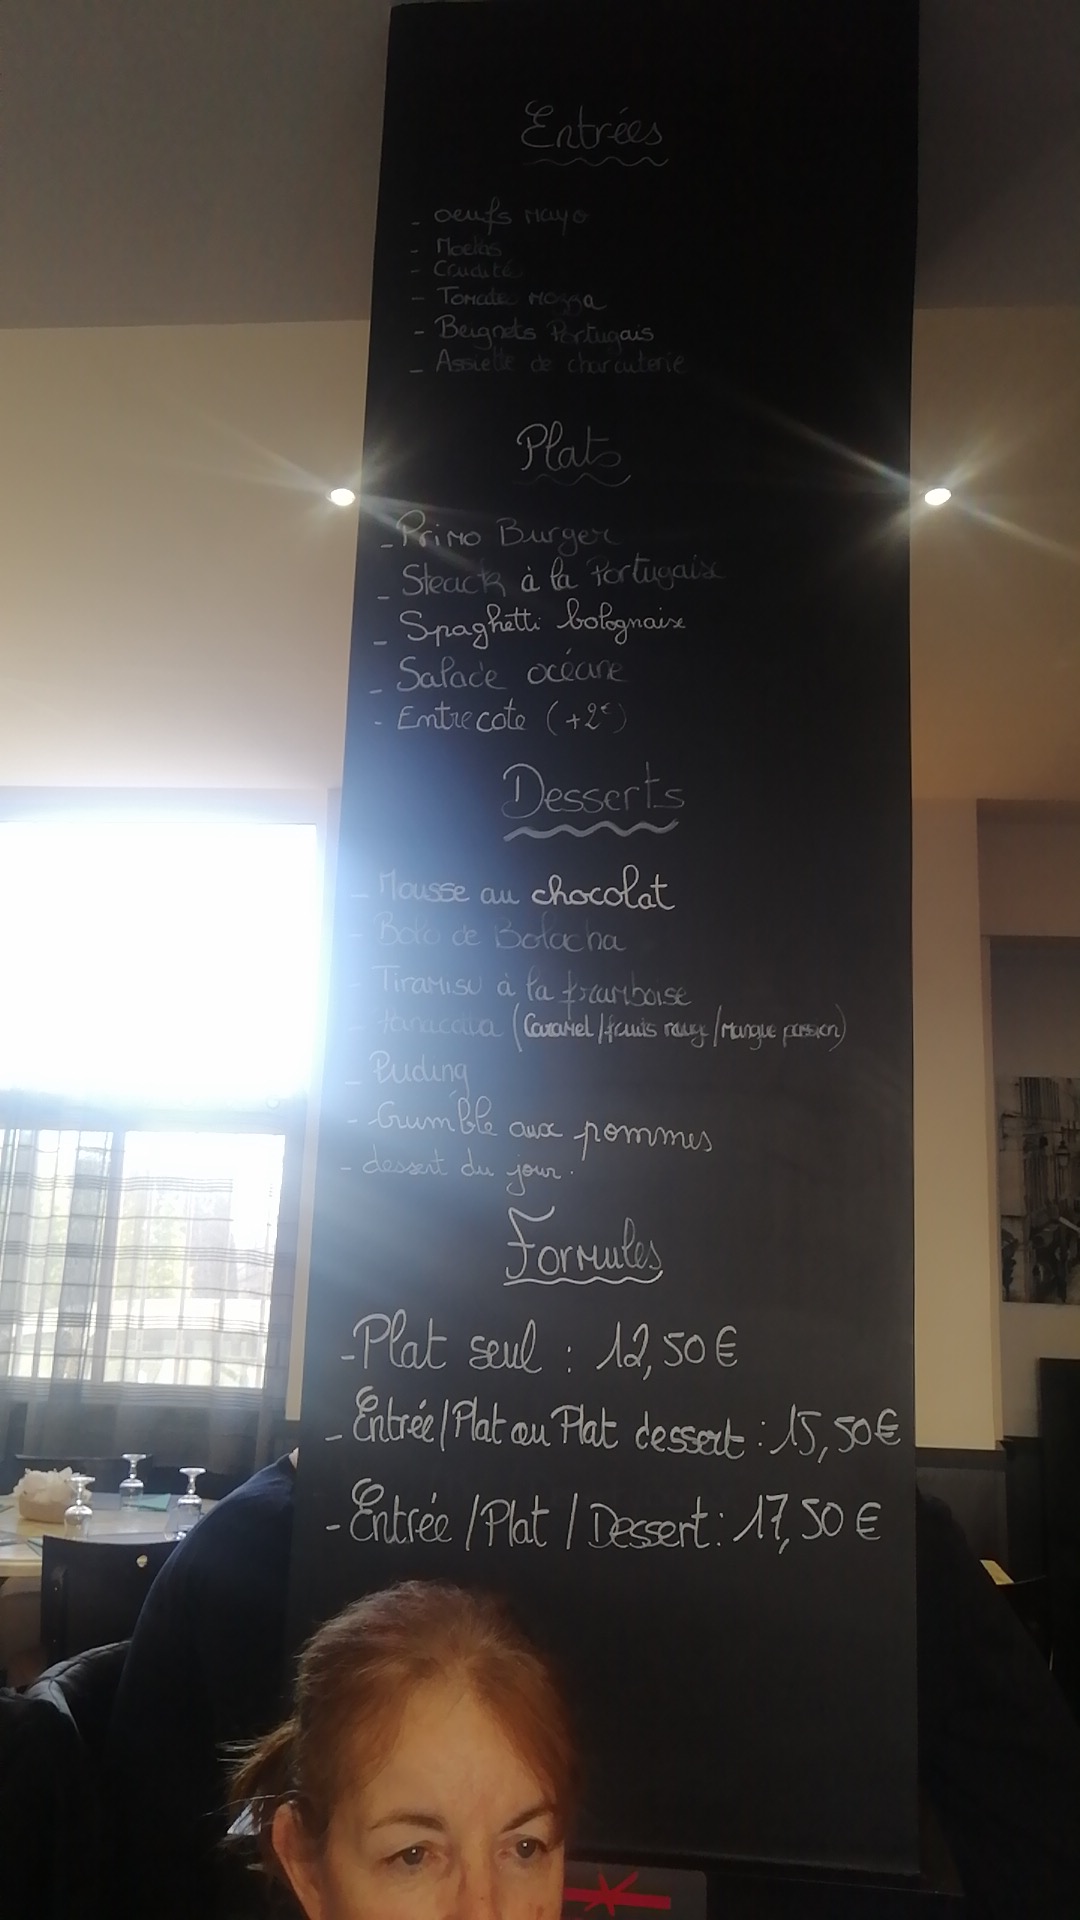 Entrées
- oeufs mayo
- Moelas
- Crudité
- Tomate mozza
- Beignets Portugais
- Assiette de charcuterie
Plats
- Primo Burger
- Steack à la Portugaise
- Spaghetti bolognaise
- Salade océane
- Entrecote (+2€)
Desserts
- Mousse au chocolat
- Bolo de Bolacha
- Tiramisu à la framboise
- (Caramel/fruits rouge/Mangue passion)
- Puding
- Crumble aux pommes
- dessert du jour.
Formules
- Plat seul : 12,50€
- Entrée/Plat ou Plat dessert : 15,50€
- Entrée/Plat/Dessert : 17,50€